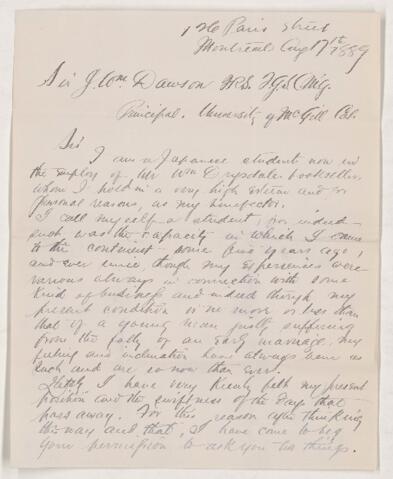 126 Paris Street
Montreal Aug 17th 1889
Sir J. Wm. Dawson
Principal. University of McGill Col.
Sir
I am a Japanese student now in
the employ of Mr Wm Drysdale bookseller
whom I hold in a very high esteem and for
personal reasons, as my benefactor.
I call myself a student, for indeed
such was the capacity in which I came
to this continent some five years ago,
and ever since, though my experiences were
various always in connection with some
kind of business and indeed though my
present condition is no more or less than
that of a young man justly suffering
from the folly of an early marriage, my
feeling and inclination have always been as
such and are so now than ever.
Lately I have very keenly felt my present
position and the swiftness of the days that
pass away. For this reason after thinking
this way and that, I have come to beg
your permission to ask you two things.